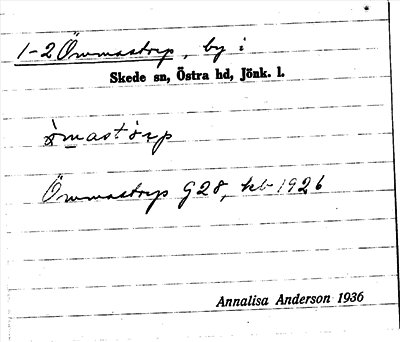 1-2 Ömmastorp, by i
Skede sn, Östra hd, Jönk. l.
Ömmastorp G28, kb 1926
Annalisa Anderson 1936